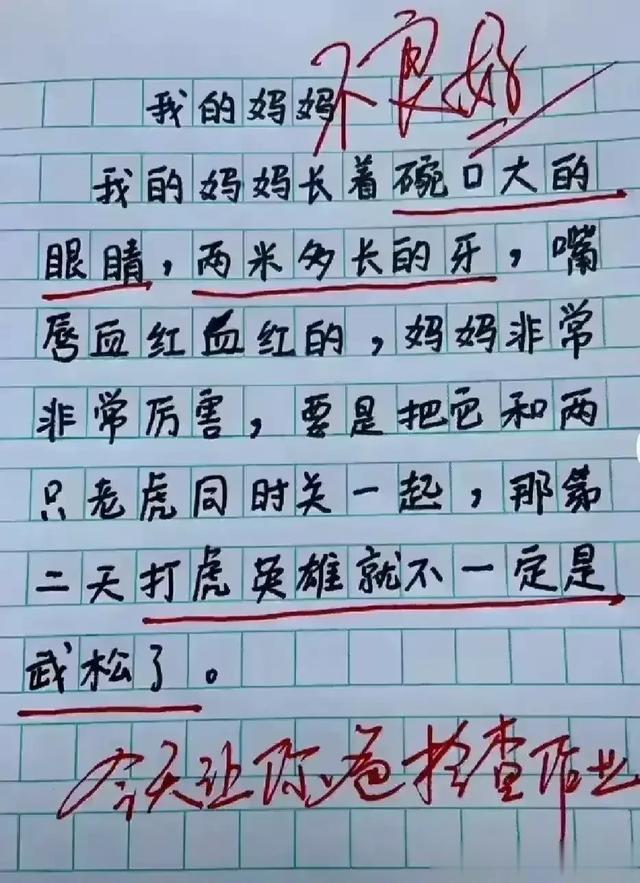 我的妈妈
不良好
我的妈妈长着碗口大的
眼睛，两米多长的牙，嘴
唇血红血红的，妈妈非常
非常厉害，要是把它和两
只老虎同时关一起，那第
二天打虎英雄就不一定是
武松了。
今天让你爸检查作业